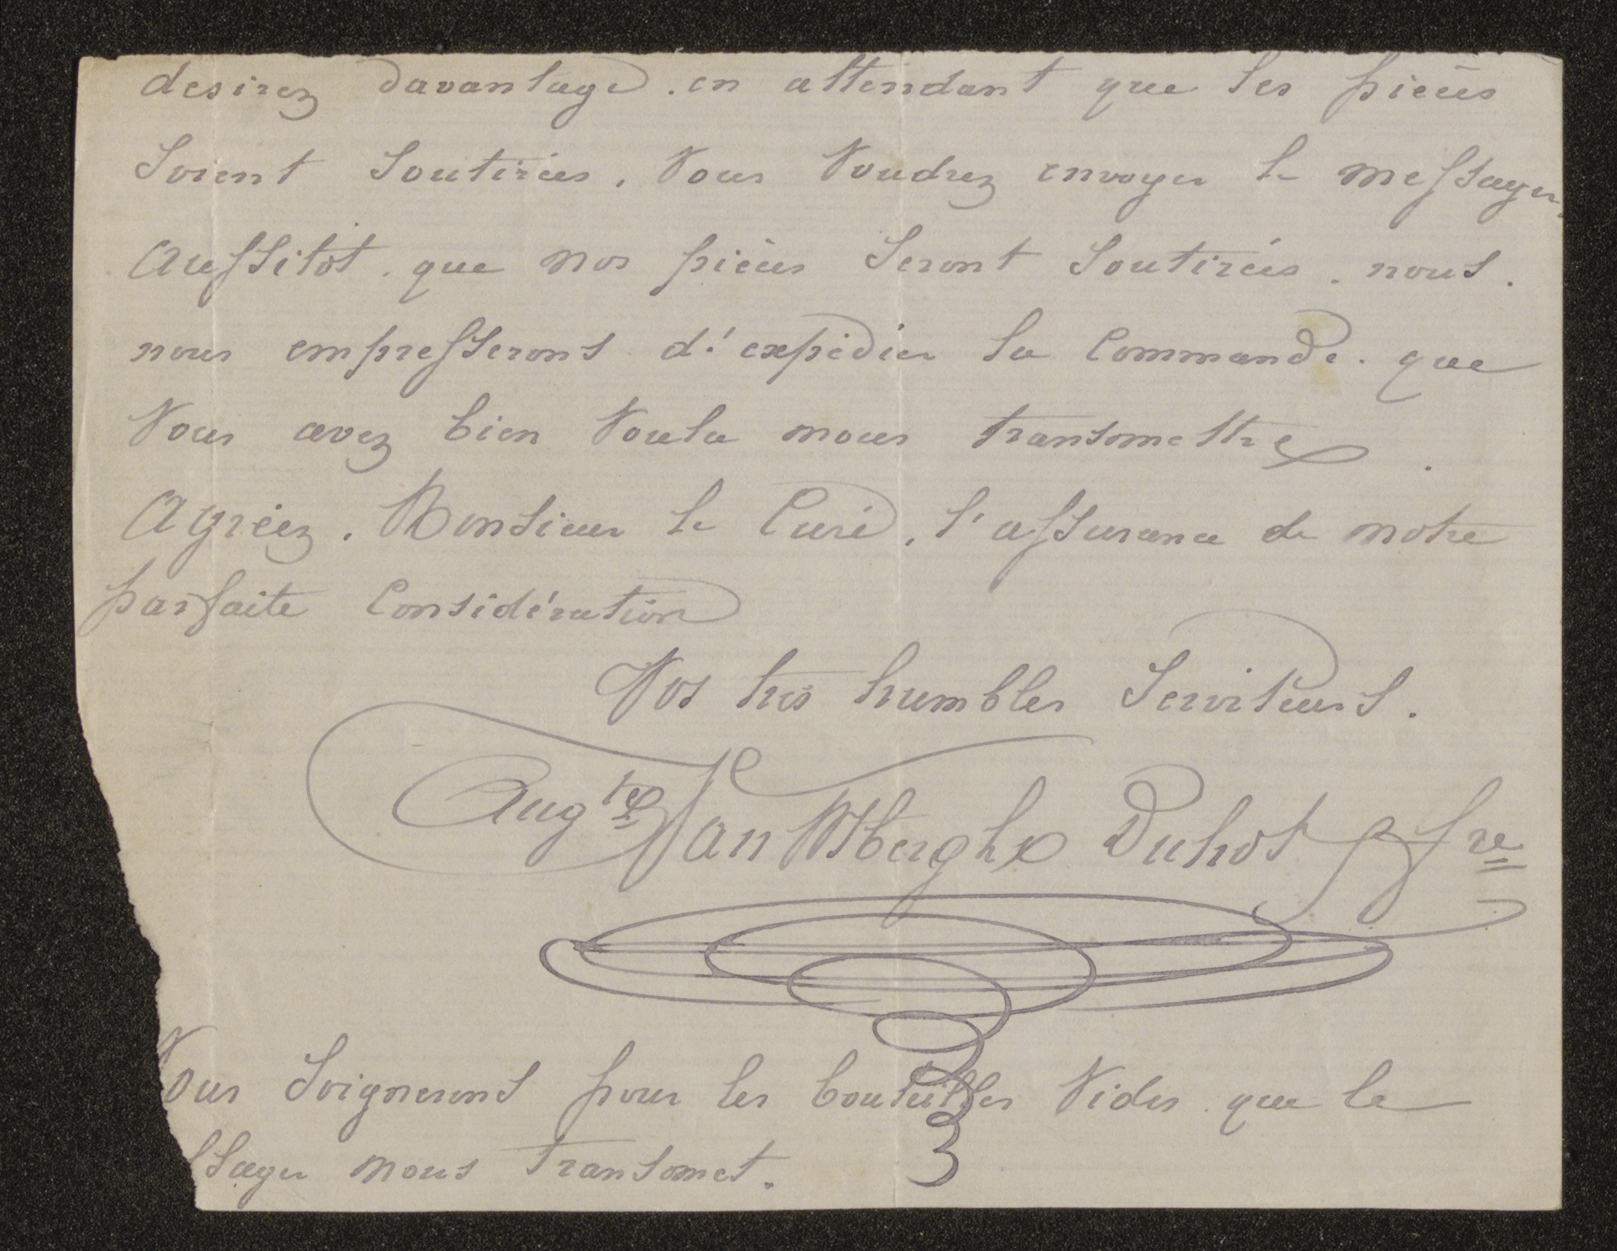 desirez davantage. en attendant que les pièces
Soient Soutirées. Vous Voudrez envoyer le Messager
Aussitot. que nos pièces Seront Soutirées. nous.
nous empresserons d'expédier la Commande. que
Vous avez bien Voulu nous transmettre.
Agréez. Monsieur le Curé, l'assurance de notre
parfaite Considération
Vos très humbles Serviteurs.
Augte Van Duhot & fre
Soignerons pour les bouteilles Vides que le
ssager nous transmet.